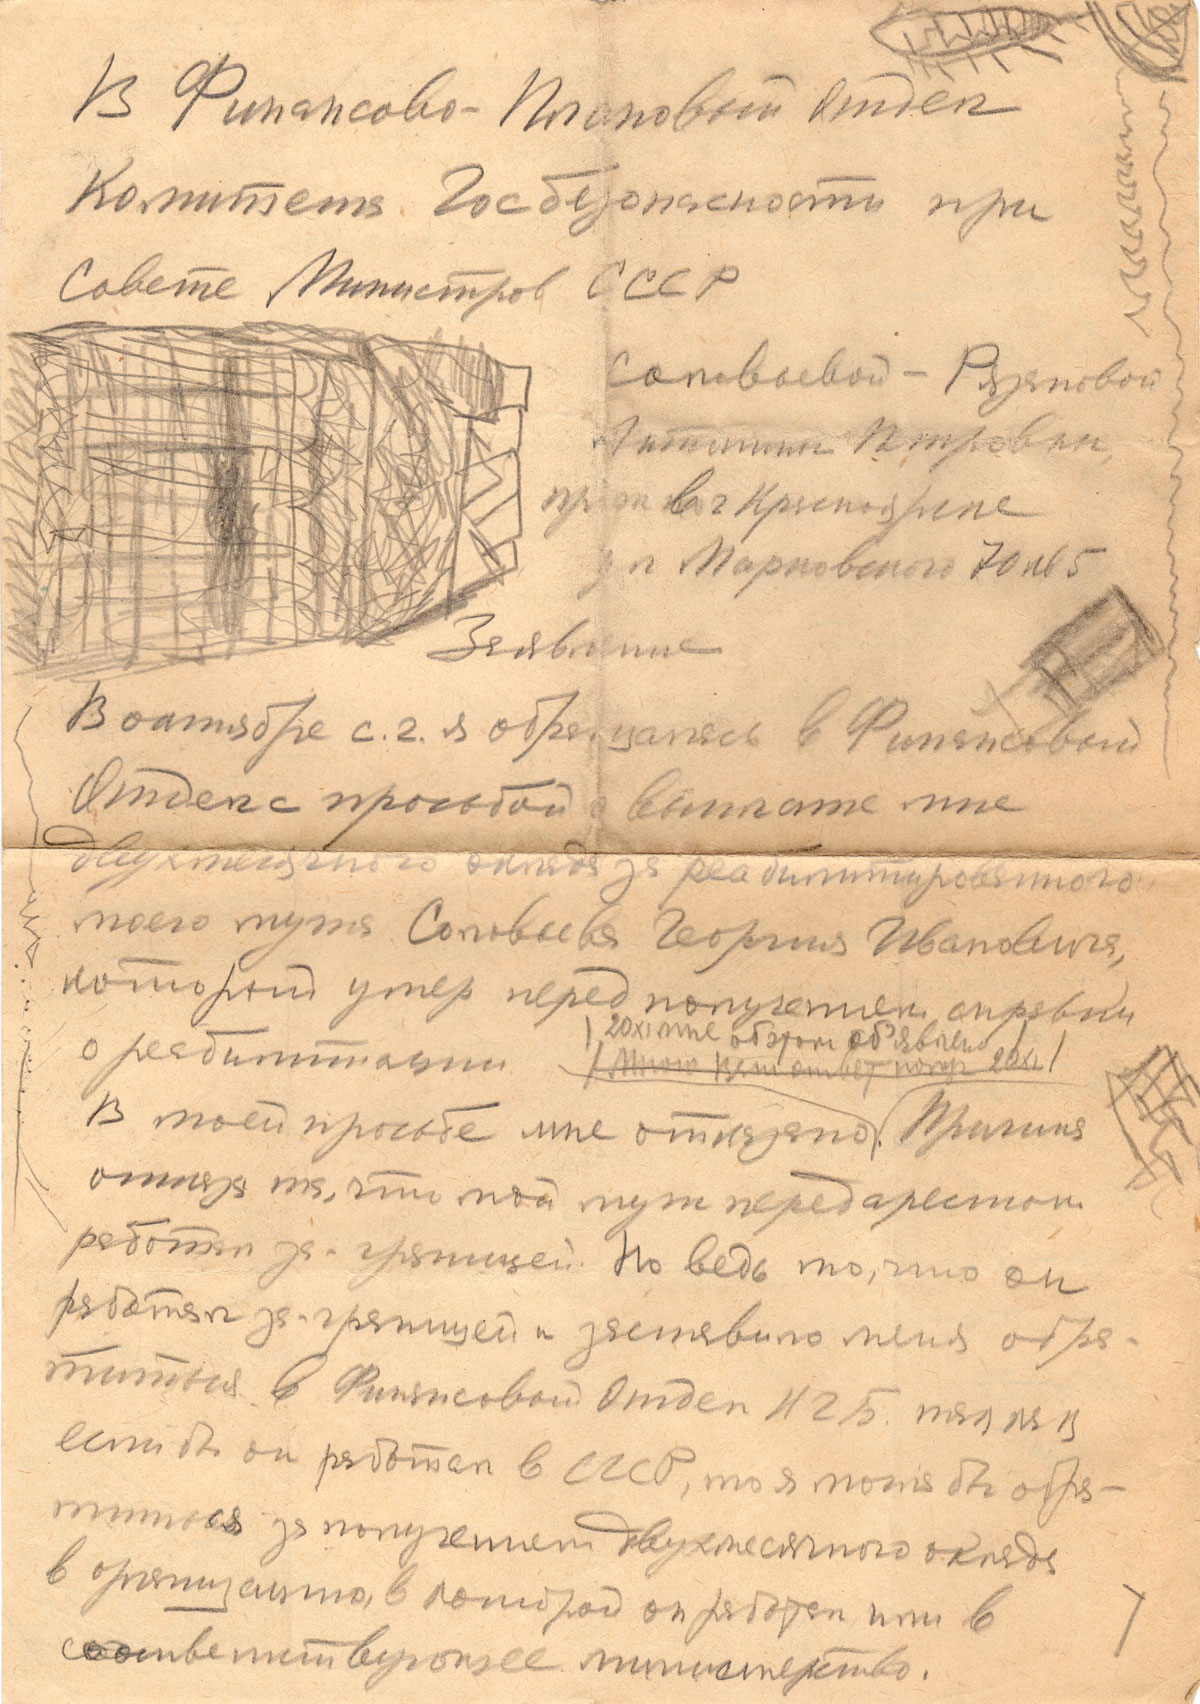 В Финансово-Плановый Отдел
Комитета Госбезопасности при
Совете Министров СССР
Соловьевой-Рязановой
Антонины Петровны,
прож в г Красноярске
ул Марковского 70 кв 5
Заявление
В октябре с.г. я обращалась в Финансовый
Отдел с просьбой о выплате мне
двухмесячного оклада за реабилитированного
моего мужа Соловьева Георгия Ивановича,
который умер перед получением справки
о реабилитации
20XI мне об этом объявлено
ответ получ 20XI
В моей просьбе мне отказано. Причина
отказа та, что мой муж перед арестом
работал за-границей. Но ведь то, что он
работал за-границей и заставило меня обра-
титься в Финансовый Отдел КГБ. так как
если бы он работал в СССР, то я могла бы обра-
титься за получением двухмесячного оклада
в организацию, в которой он работал или в
соответствующее министерство.